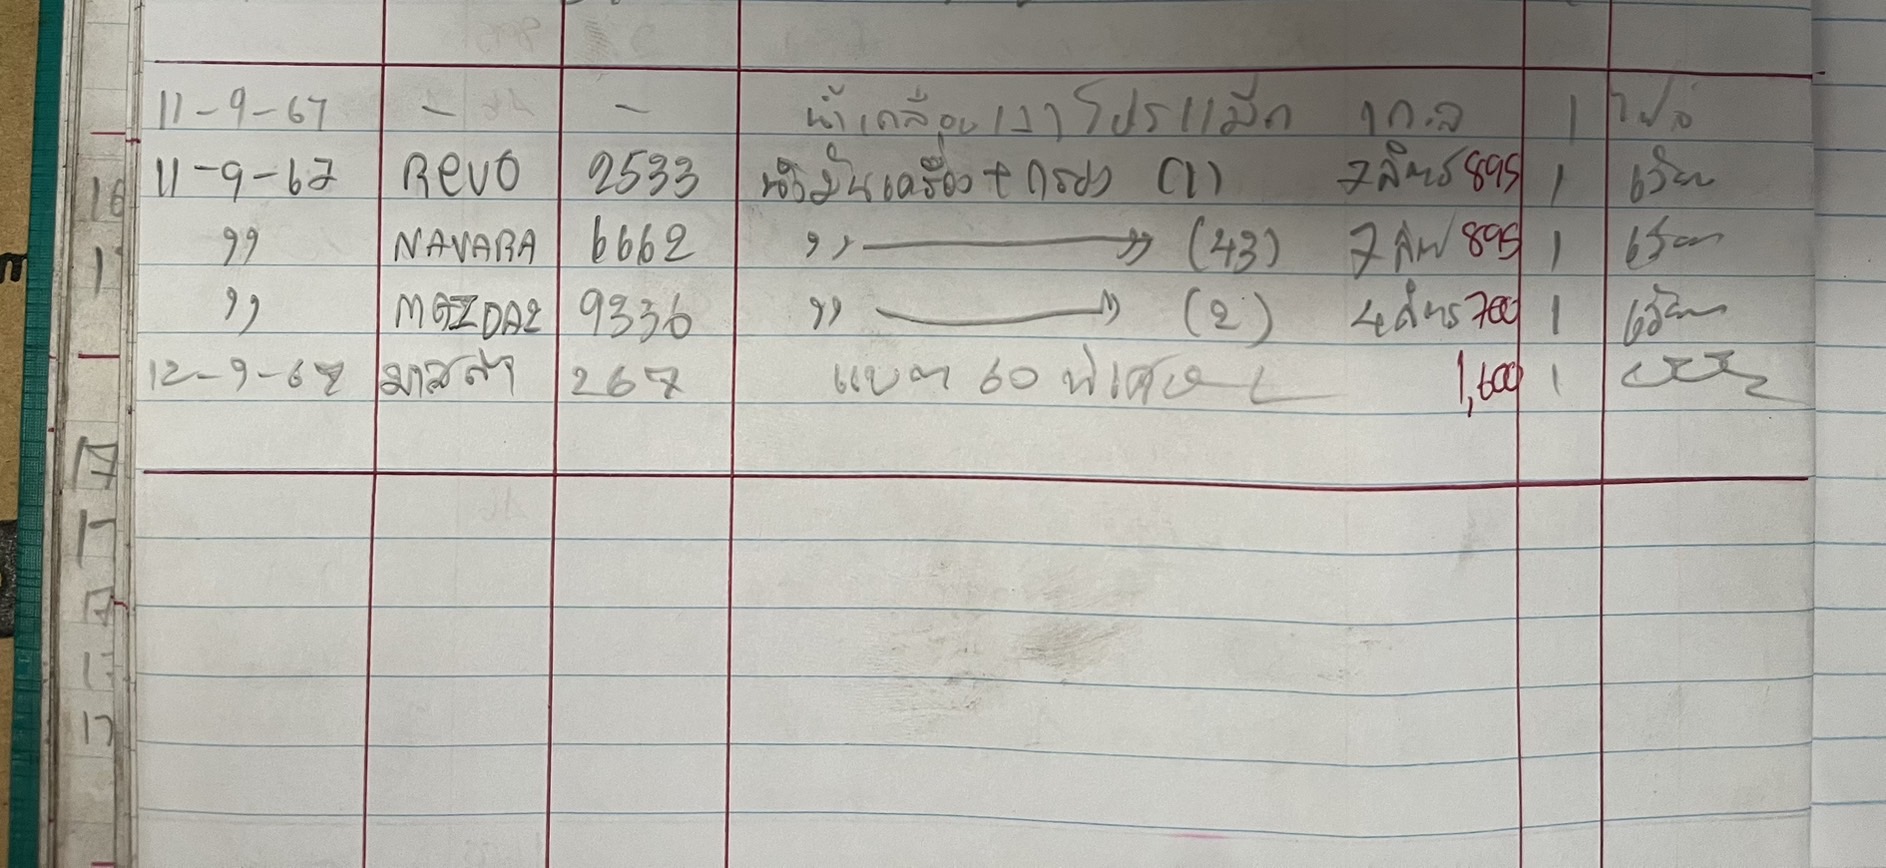 11-9-67 - - น้ำเคลือบเงาโปรแม็ก 1 ก.ล 1
11-9-67 Revo 2533 น้ำมันเครื่อง + กรอง (1) 7 ลิตร 895 1
" NAVARA 6662 " " (43) 7 ลิตร 895 1
" MAZDA2 9336 " " (2) 4 ลิตร 700 1
12-9-67 มาสด้า 267 แบต 60 พิเศษ 1,600 1